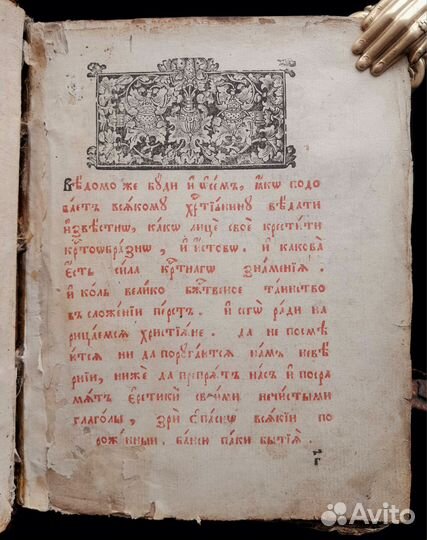 Вѣ́домо же бꙋ́ди и҆ ѡ҆ се́мъ, ꙗ҆́кѡ подо
ба́етъ вся́кому хрⷭ҇тїа́нину вѣ́дати
и҆звѣ́стнѡ, ка́кѡ лицѐ своѐ крести́ти
крⷭ҇тоѡбра́знѡ, и҆ и҆́стовѡ. и҆ какова̀
є҆́сть си́ла крⷭ҇тнагѡ зна́менїя.
и҆ ко́ль вели́ко бжⷭ҇твеное та́инство
въ сложе́нїи пе́рстъ. и҆ сегѡ̀ ра́ди на
рица́емся христїа́не. да не посмѣ
ю́тся ни да порꙋга́ются на́мъ невѣ́
рнїи, ниже́ да препря́тъ на́съ и҆ посра
мя́тъ є҆ретикѝ свои́ми нечи́стыми
глаго́лы, зрѝ вся́кїи по
паки бытїѧ̀.
г҃
Avito